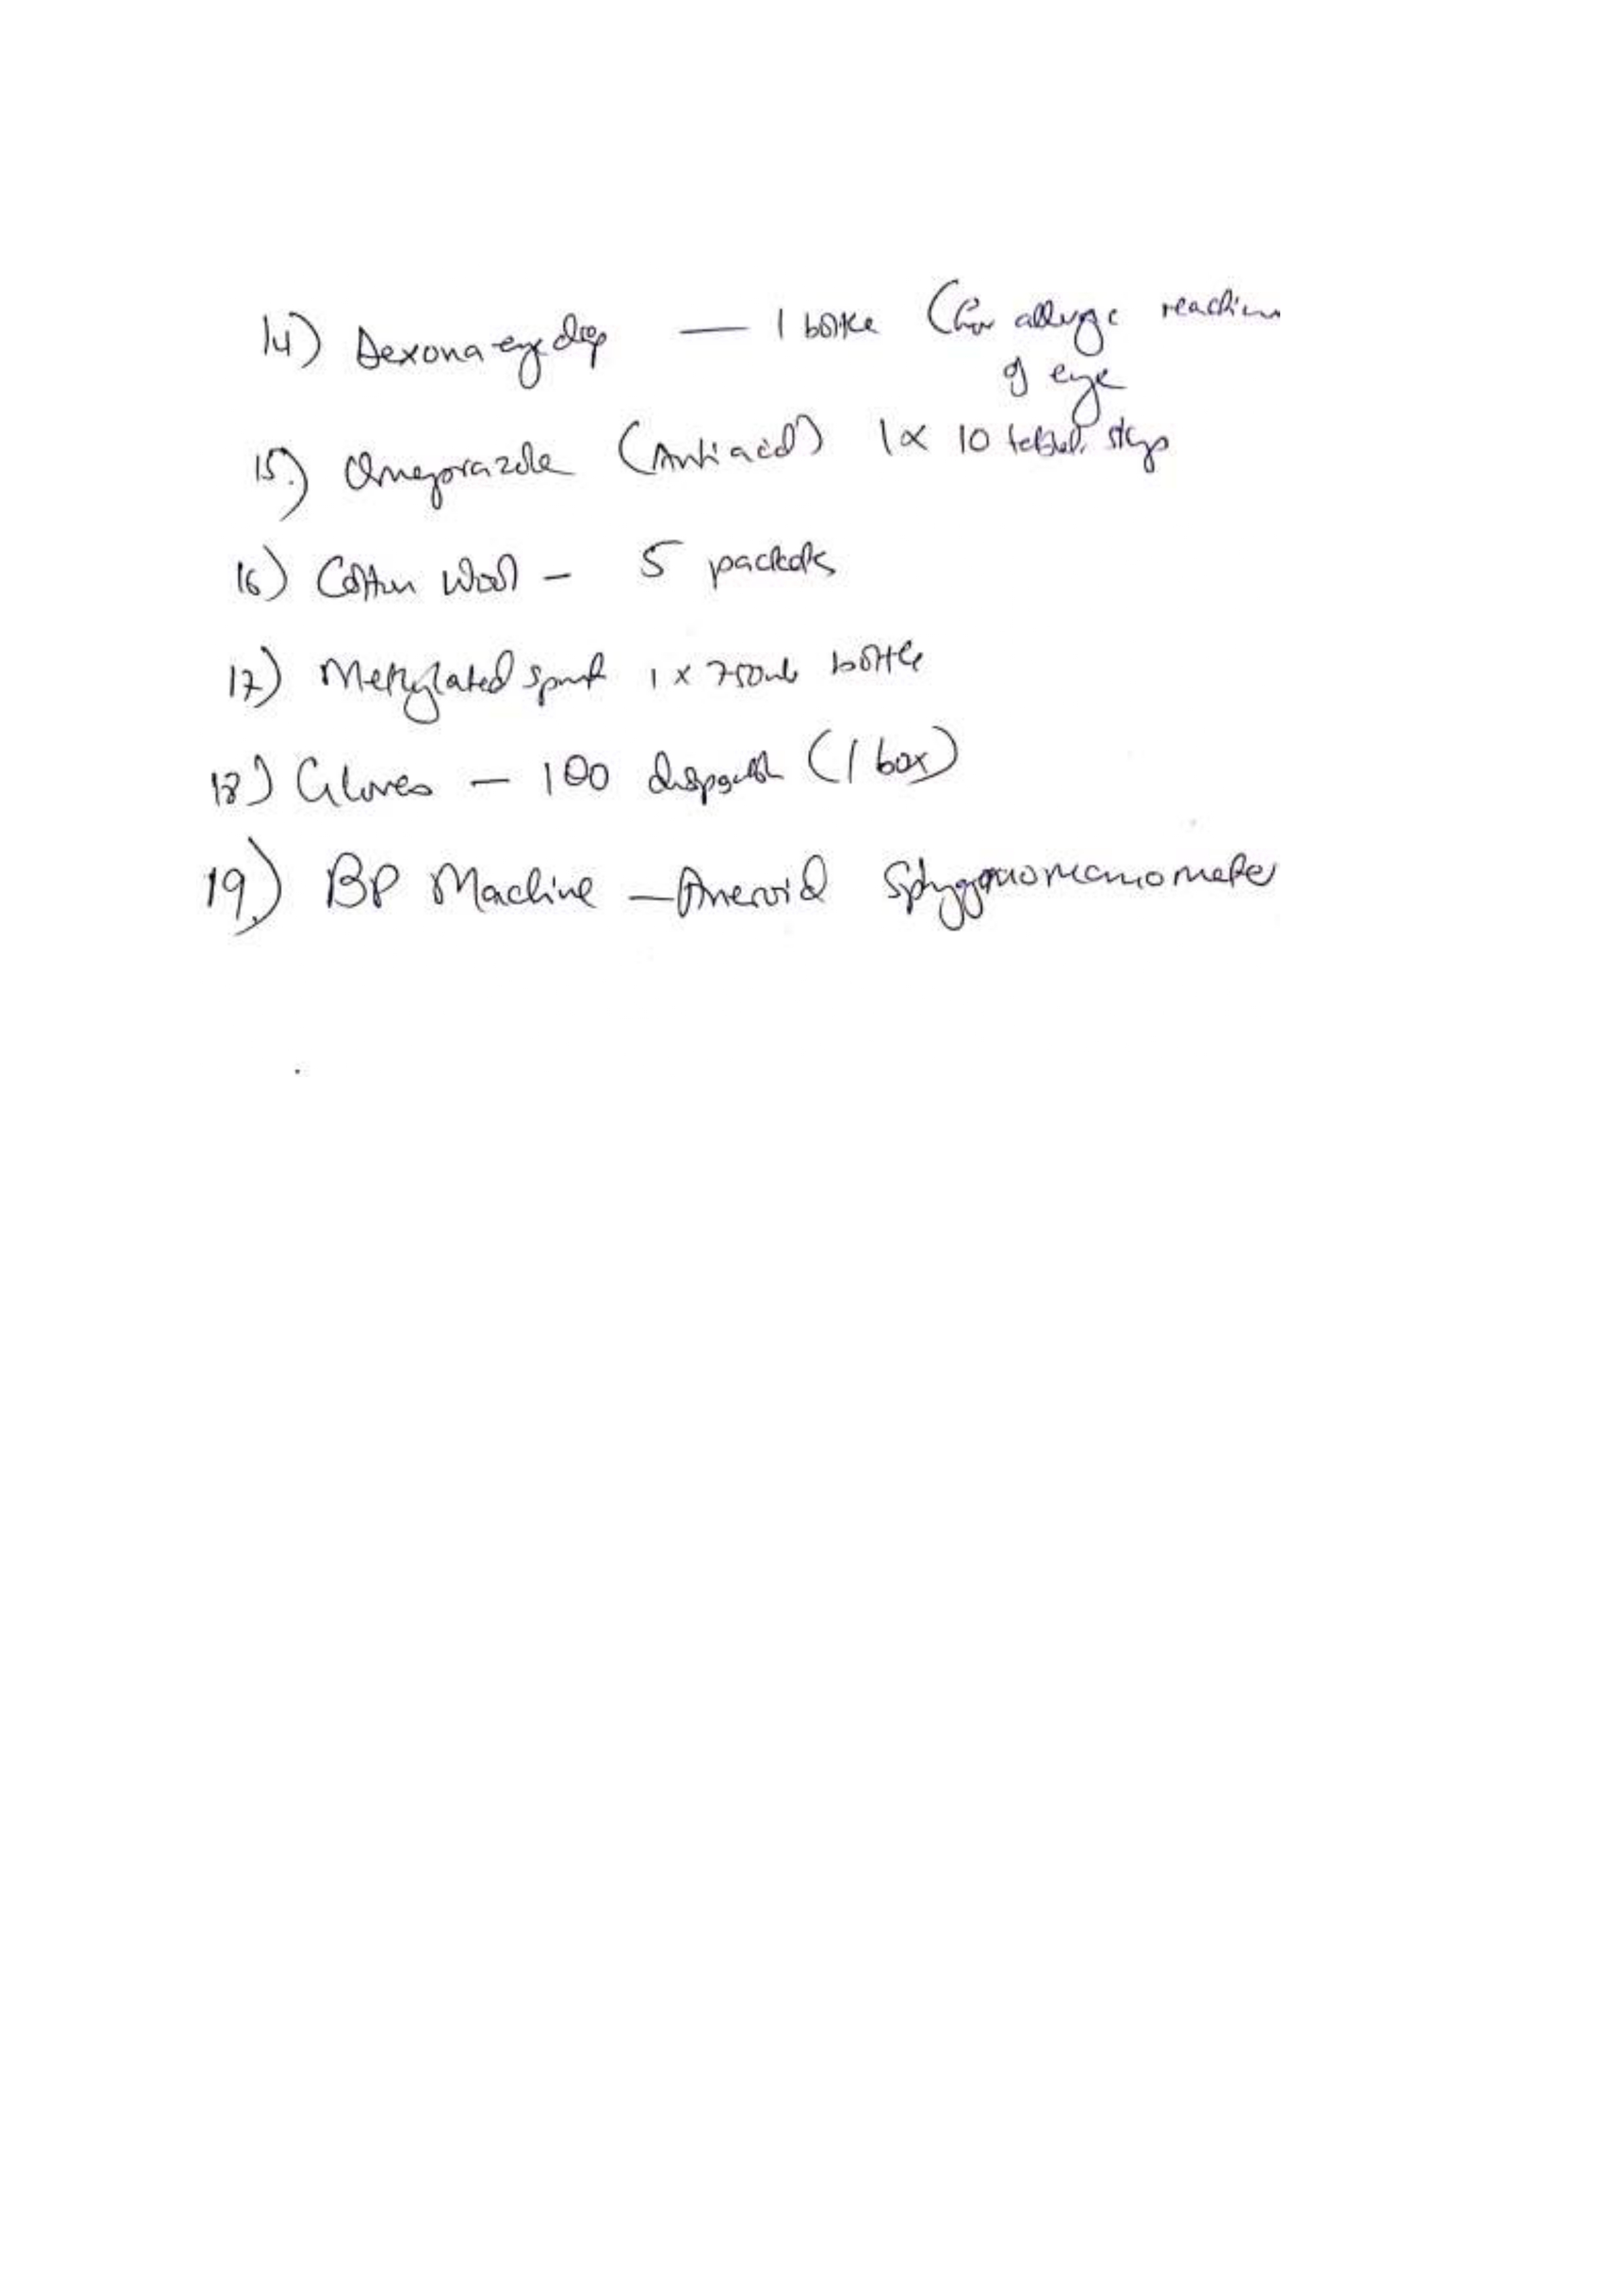 14) Dexona eye drop — 1 bottle (For allergic reaction
of eye
15.) Omeprazole (Antiacid) 1 x 10 tablet strip
16) Cotton Wool - 5 packets
17) Methylated spirit 1 x 750mls bottle
18) Gloves - 100 disposable (1 box)
19.) BP Machine - Aneroid Sphygmomanometer